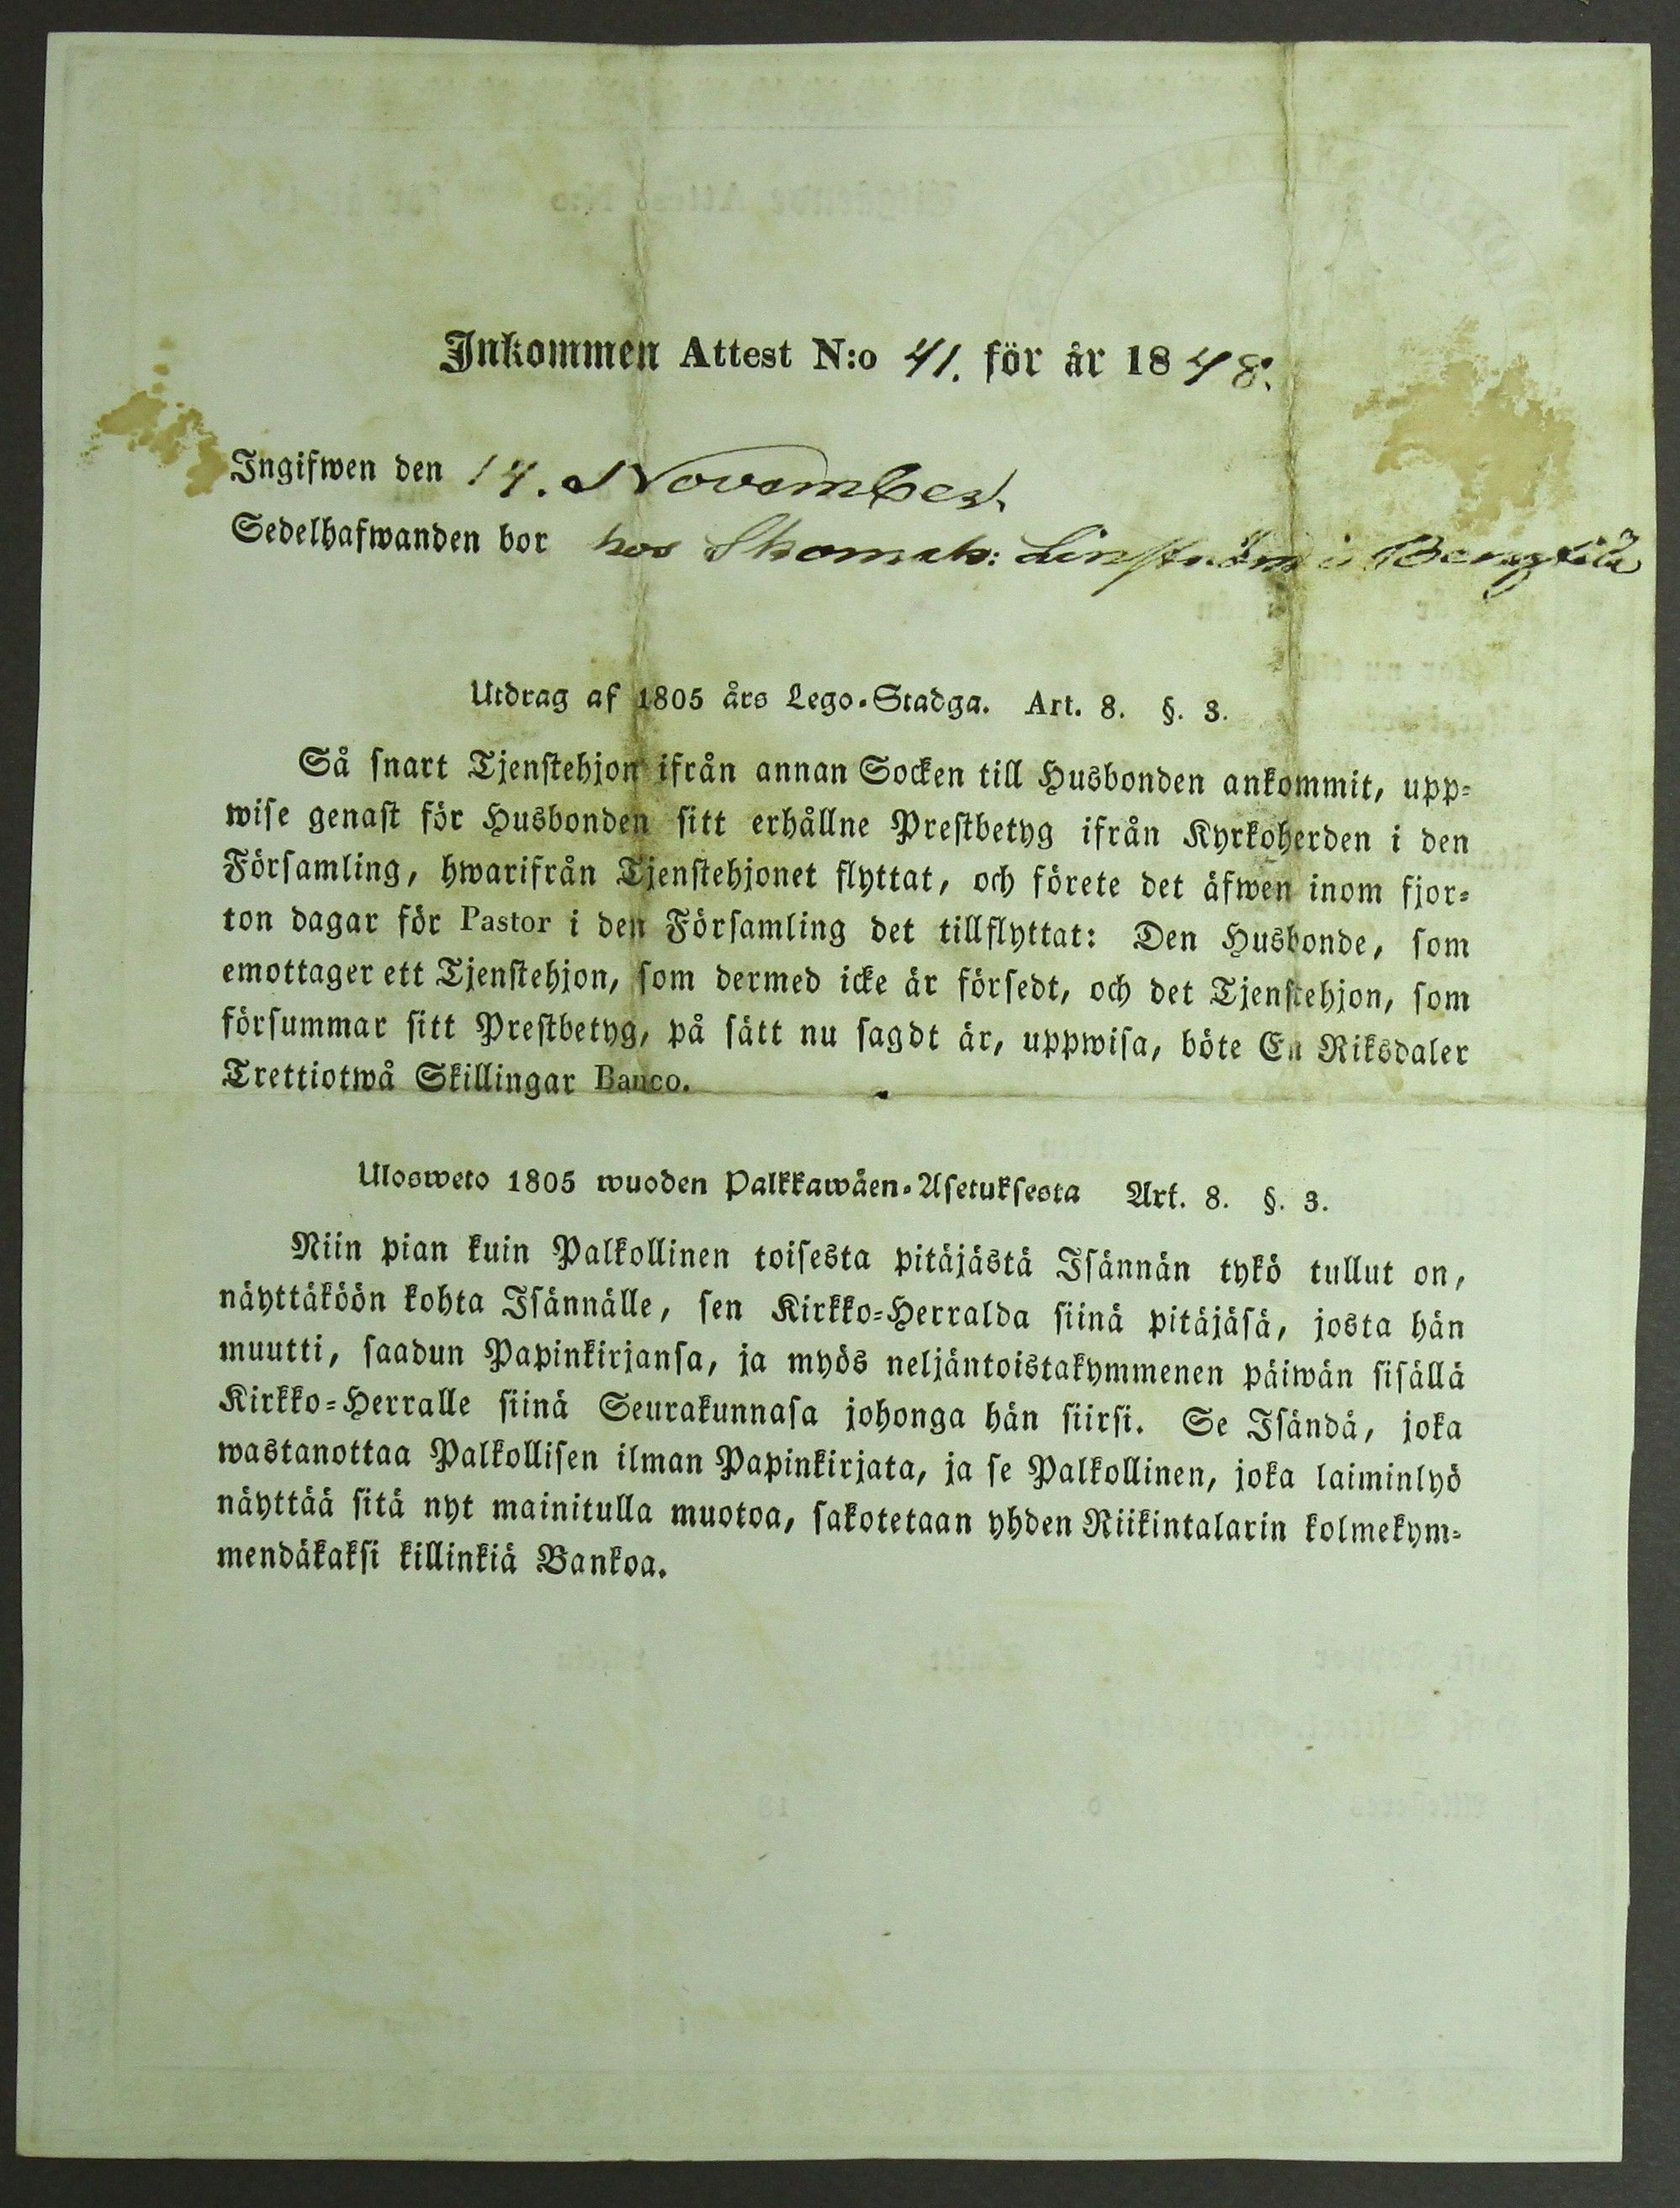 Inkommen Attest N:o 41. för år 1848.
Ingifwen den 14. November.
Sedelhafwanden bor hos Skomak: Linström i
Utdrag af 1805 års Lego-Stadga. Art. 8. §. 3.
Så snart Tjenstehjon ifrån annan Socken till Husbonden ankommit, upp-
wise genast för Husbonden sitt erhållne Prestbetyg ifrån Kyrkoherden i den
Församling, hwarifrån Tjenstehjonet flyttat, och förete det äfwen inom fjor-
ton dagar för Pastor i den Församling det tillflyttat: Den Husbonde, som
emottager ett Tjenstehjon, som dermed icke är försedt, och det Tjenstehjon, som
försummar sitt Prestbetyg, på sätt nu sagdt är, uppwisa, böte En Riksdaler
Trettiotwå Skillingar Banco.
Ulosweto 1805 wuoden Palkkawäen-Asetuksesta Art. 8. §. 3.
Niin pian kuin Palkollinen toisesta pitäjästä Isännän tykö tullut on,
näyttäköön kohta Isännälle, sen Kirkko-Herralda siinä pitäjäsä, josta hän
muutti, saadun Papinkirjansa, ja myös neljäntoistakymmenen päiwän sisällä
Kirkko-Herralle siinä Seurakunnasa johonga hän siirsi. Se Isändä, joka
wastanottaa Palkollisen ilman Papinkirjata, ja se Palkollinen, joka laiminlyö
näyttää sitä nyt mainitulla muotoa, sakotetaan yhden Riikintalarin kolmekym-
mendäkaksi killinkiä Bankoa.